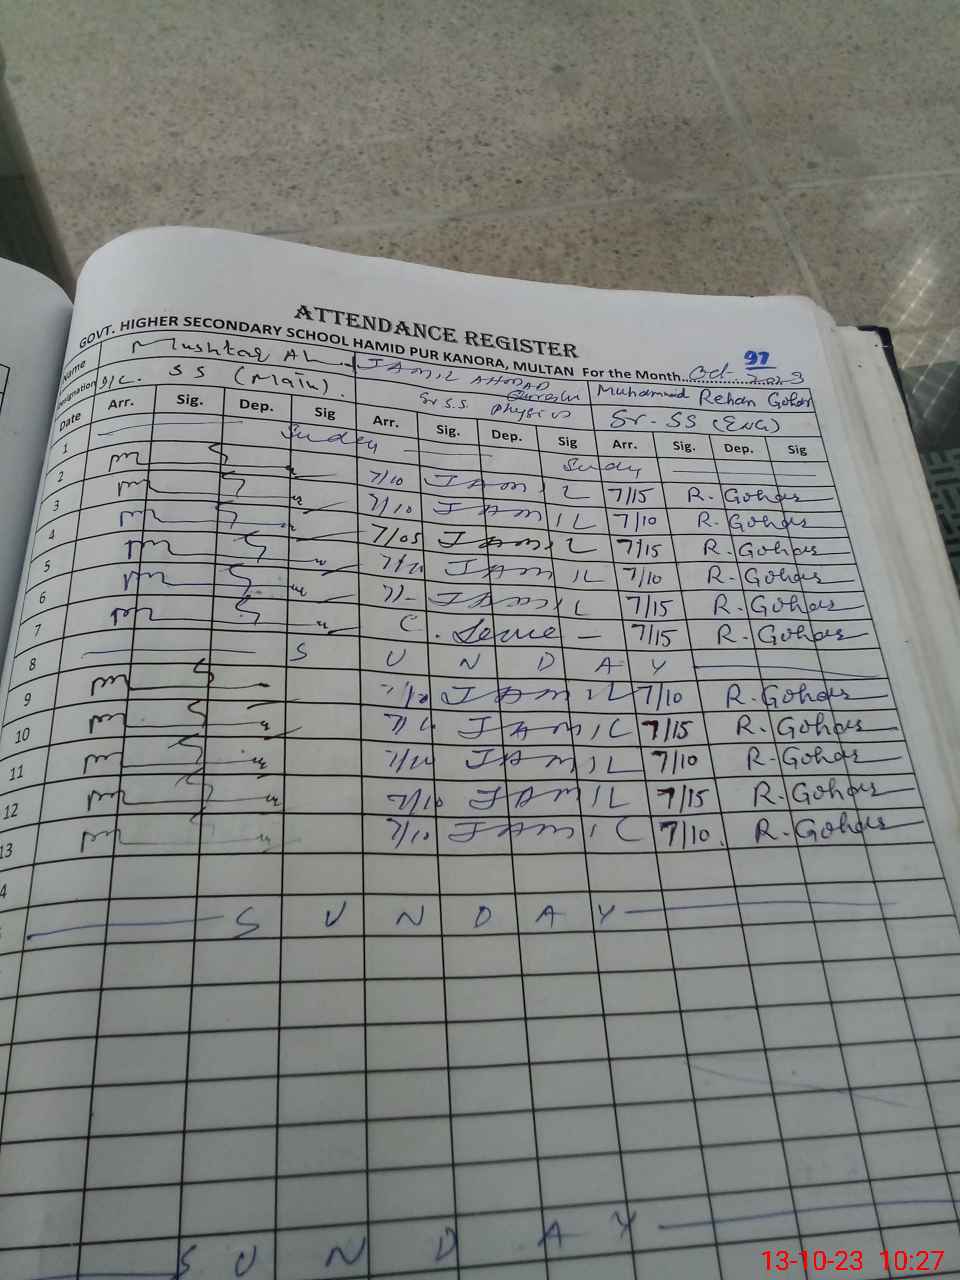 97
ATTENDANCE REGISTER
GOVT. HIGHER SECONDARY SCHOOL HAMID PUR KANORA, MULTAN For the Month Oct-2023
Name Mushtaq JAMIL AHMAD Muhammad Rehan Gohar
Designation SS (Main). Sr S.S. Physics Sr-SS (ENG)
Date Arr. Sig. Dep. Sig Arr. Sig. Dep. Sig Arr. Sig. Dep. Sig
1 Sunday Sunday
2 m 7/10 JAMIL 7/15 R. Gohar
3 m 7/10 JAMIL 7/10 R. Gohar
4 m 7/05 JAMIL 7/15 R. Gohar
5 m JAMIL 7/10 R. Gohar
6 m JAMIL 7/15 R. Gohar
7 m C. Leave - 7/15 R. Gohar
8 S U N D A Y
9 m JAMIL 7/10 R. Gohar
10 m JAMIL 7/15 R. Gohar
11 m JAMIL 7/10 R. Gohar
12 m 7/10 JAMIL 7/15 R. Gohar
13 m 7/10 JAMIL 7/10. R. Gohar
4
S U N D A Y
S U N D A Y
13-10-23 10:27